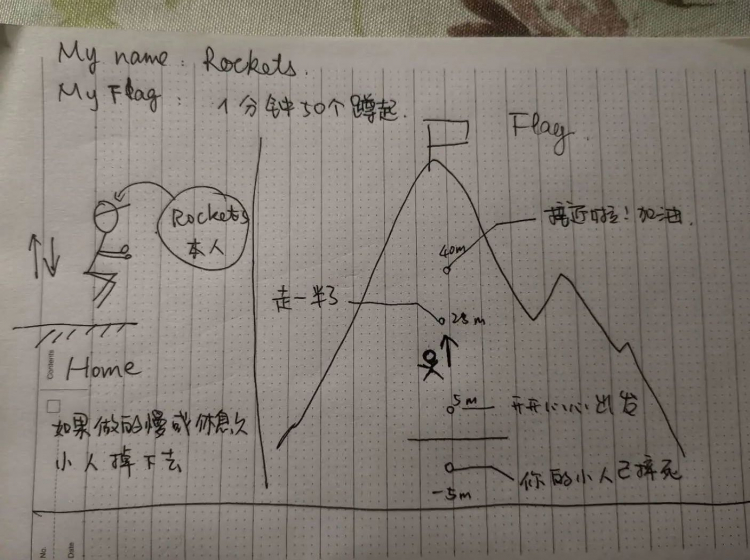 My name : Rockets.
My Flag : 1分钟50个蹲起.
Flag.
Rockets
本人
Home
如果做的慢或休息久
小人掉下去
40m
接近啦！加油.
走一半了
25m
5m
开开心心出发
-5m
你的小人已摔死
Contents
No.
Date